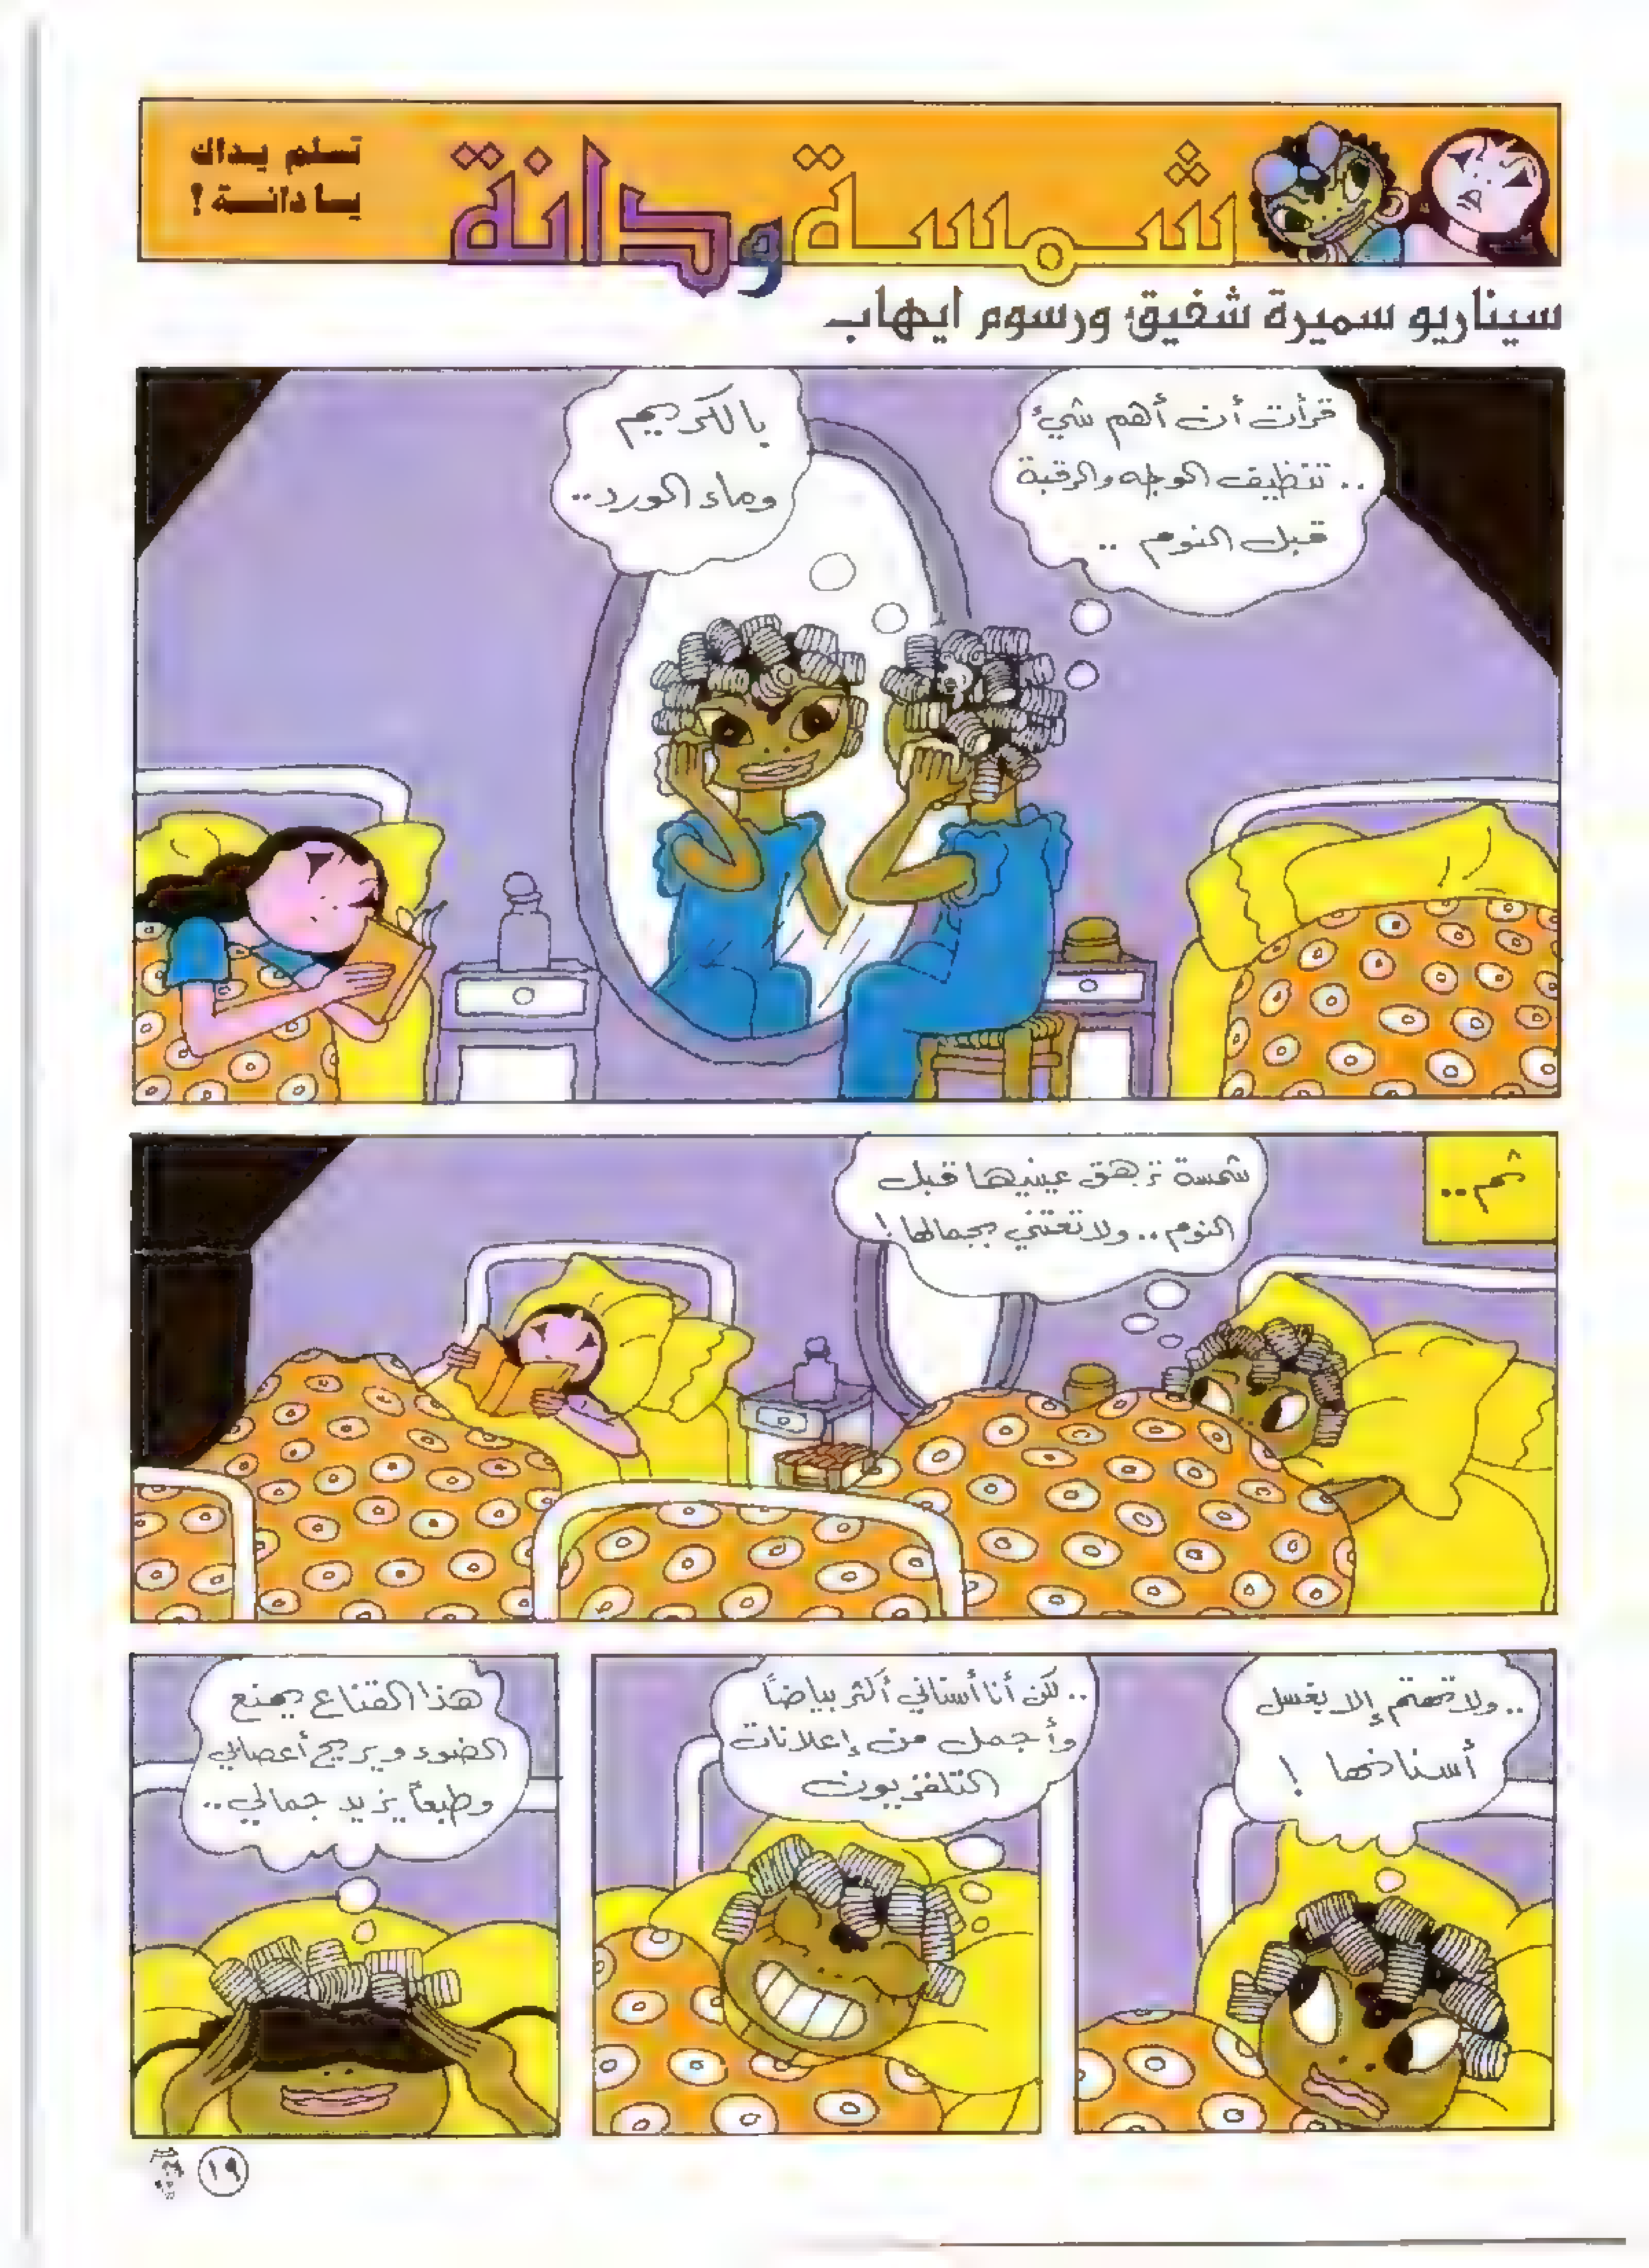 شمسة ودانة
تسلم يداك
يا دانة !
سيناريو سميرة شفيق ورسوم ايهاب
قرأت أن أهم شيء
.. تنظيف الوجه والرقبة
قبل النوم ..
بالكريم
وماء الورد..
ثم..
شمسة ترهق عينيها قبل
النوم.. ولا تعتني بجمالها !
.. ولا تهتم إلا بغسل
أسنانها !
.. لكن أنا أسناني أكثر بياضاً
وأجمل من إعلانات
التلفزيون
هذا القناع يمنع
الضوء ويريح أعصابي
وطبعاً يزيد جمالي..
١٩